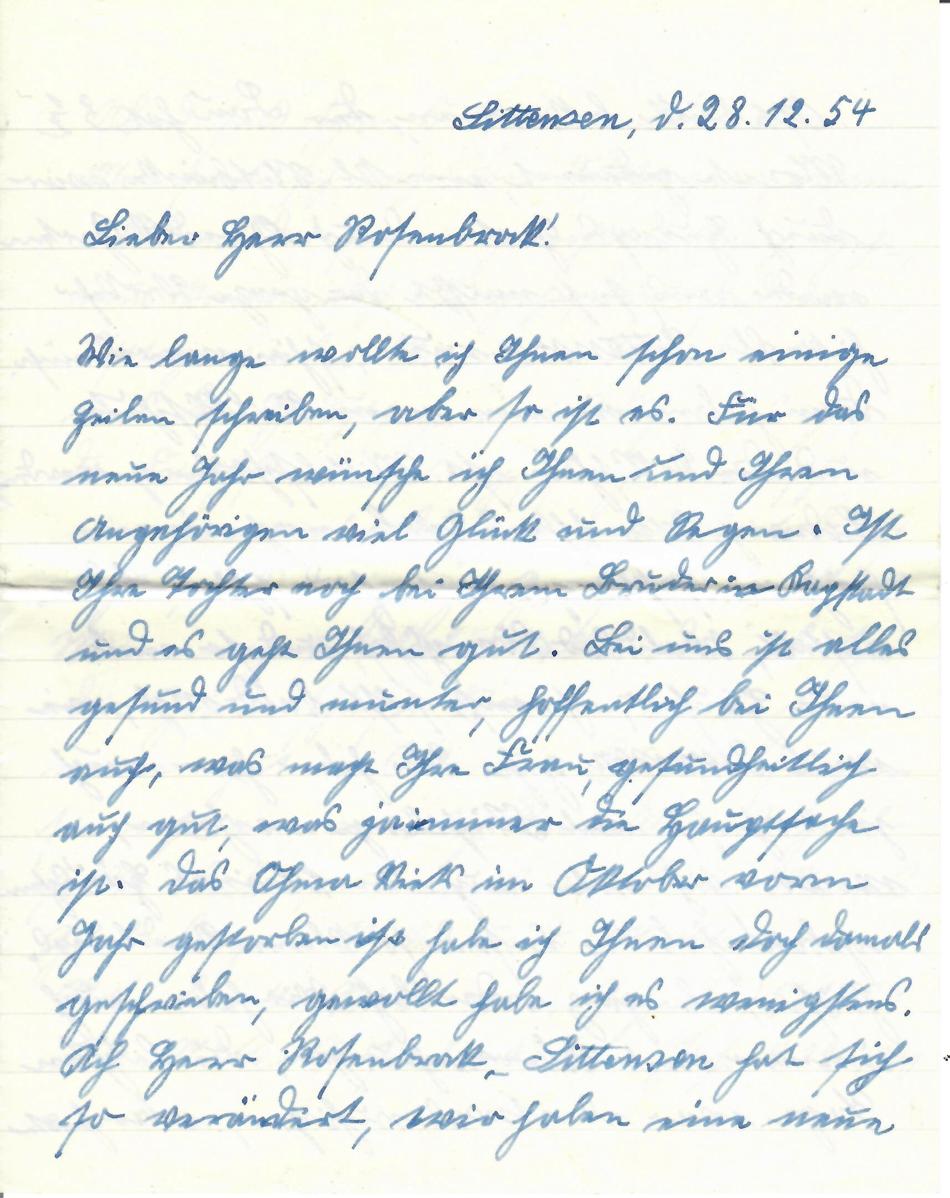 Sittensen, d. 28.12.54
Lieber Herr Rosenbrock!
Wie lange wollte ich Ihnen schon einige
Zeilen schreiben, aber so ist es. Für das
neue Jahr wünsche ich Ihnen und Ihren
Angehörigen viel Glück und Segen. Ist
Ihre Tochter noch bei Ihrem Bruder in Kapstadt
und es geht Ihnen gut. Bei uns ist alles
gesund und munter, hoffentlich bei Ihnen
auch, was macht Ihre Frau, gesundheitlich
auch gut, was ja immer die Hauptsache
ist. Das Ohma Viets im Oktober vorm
Jahr gestorben ist habe ich Ihnen doch damals
geschrieben, gewollt habe ich es wenigstens.
Ach Herr Rosenbrock, Sittensen hat sich
so verändert, wir haben eine neue